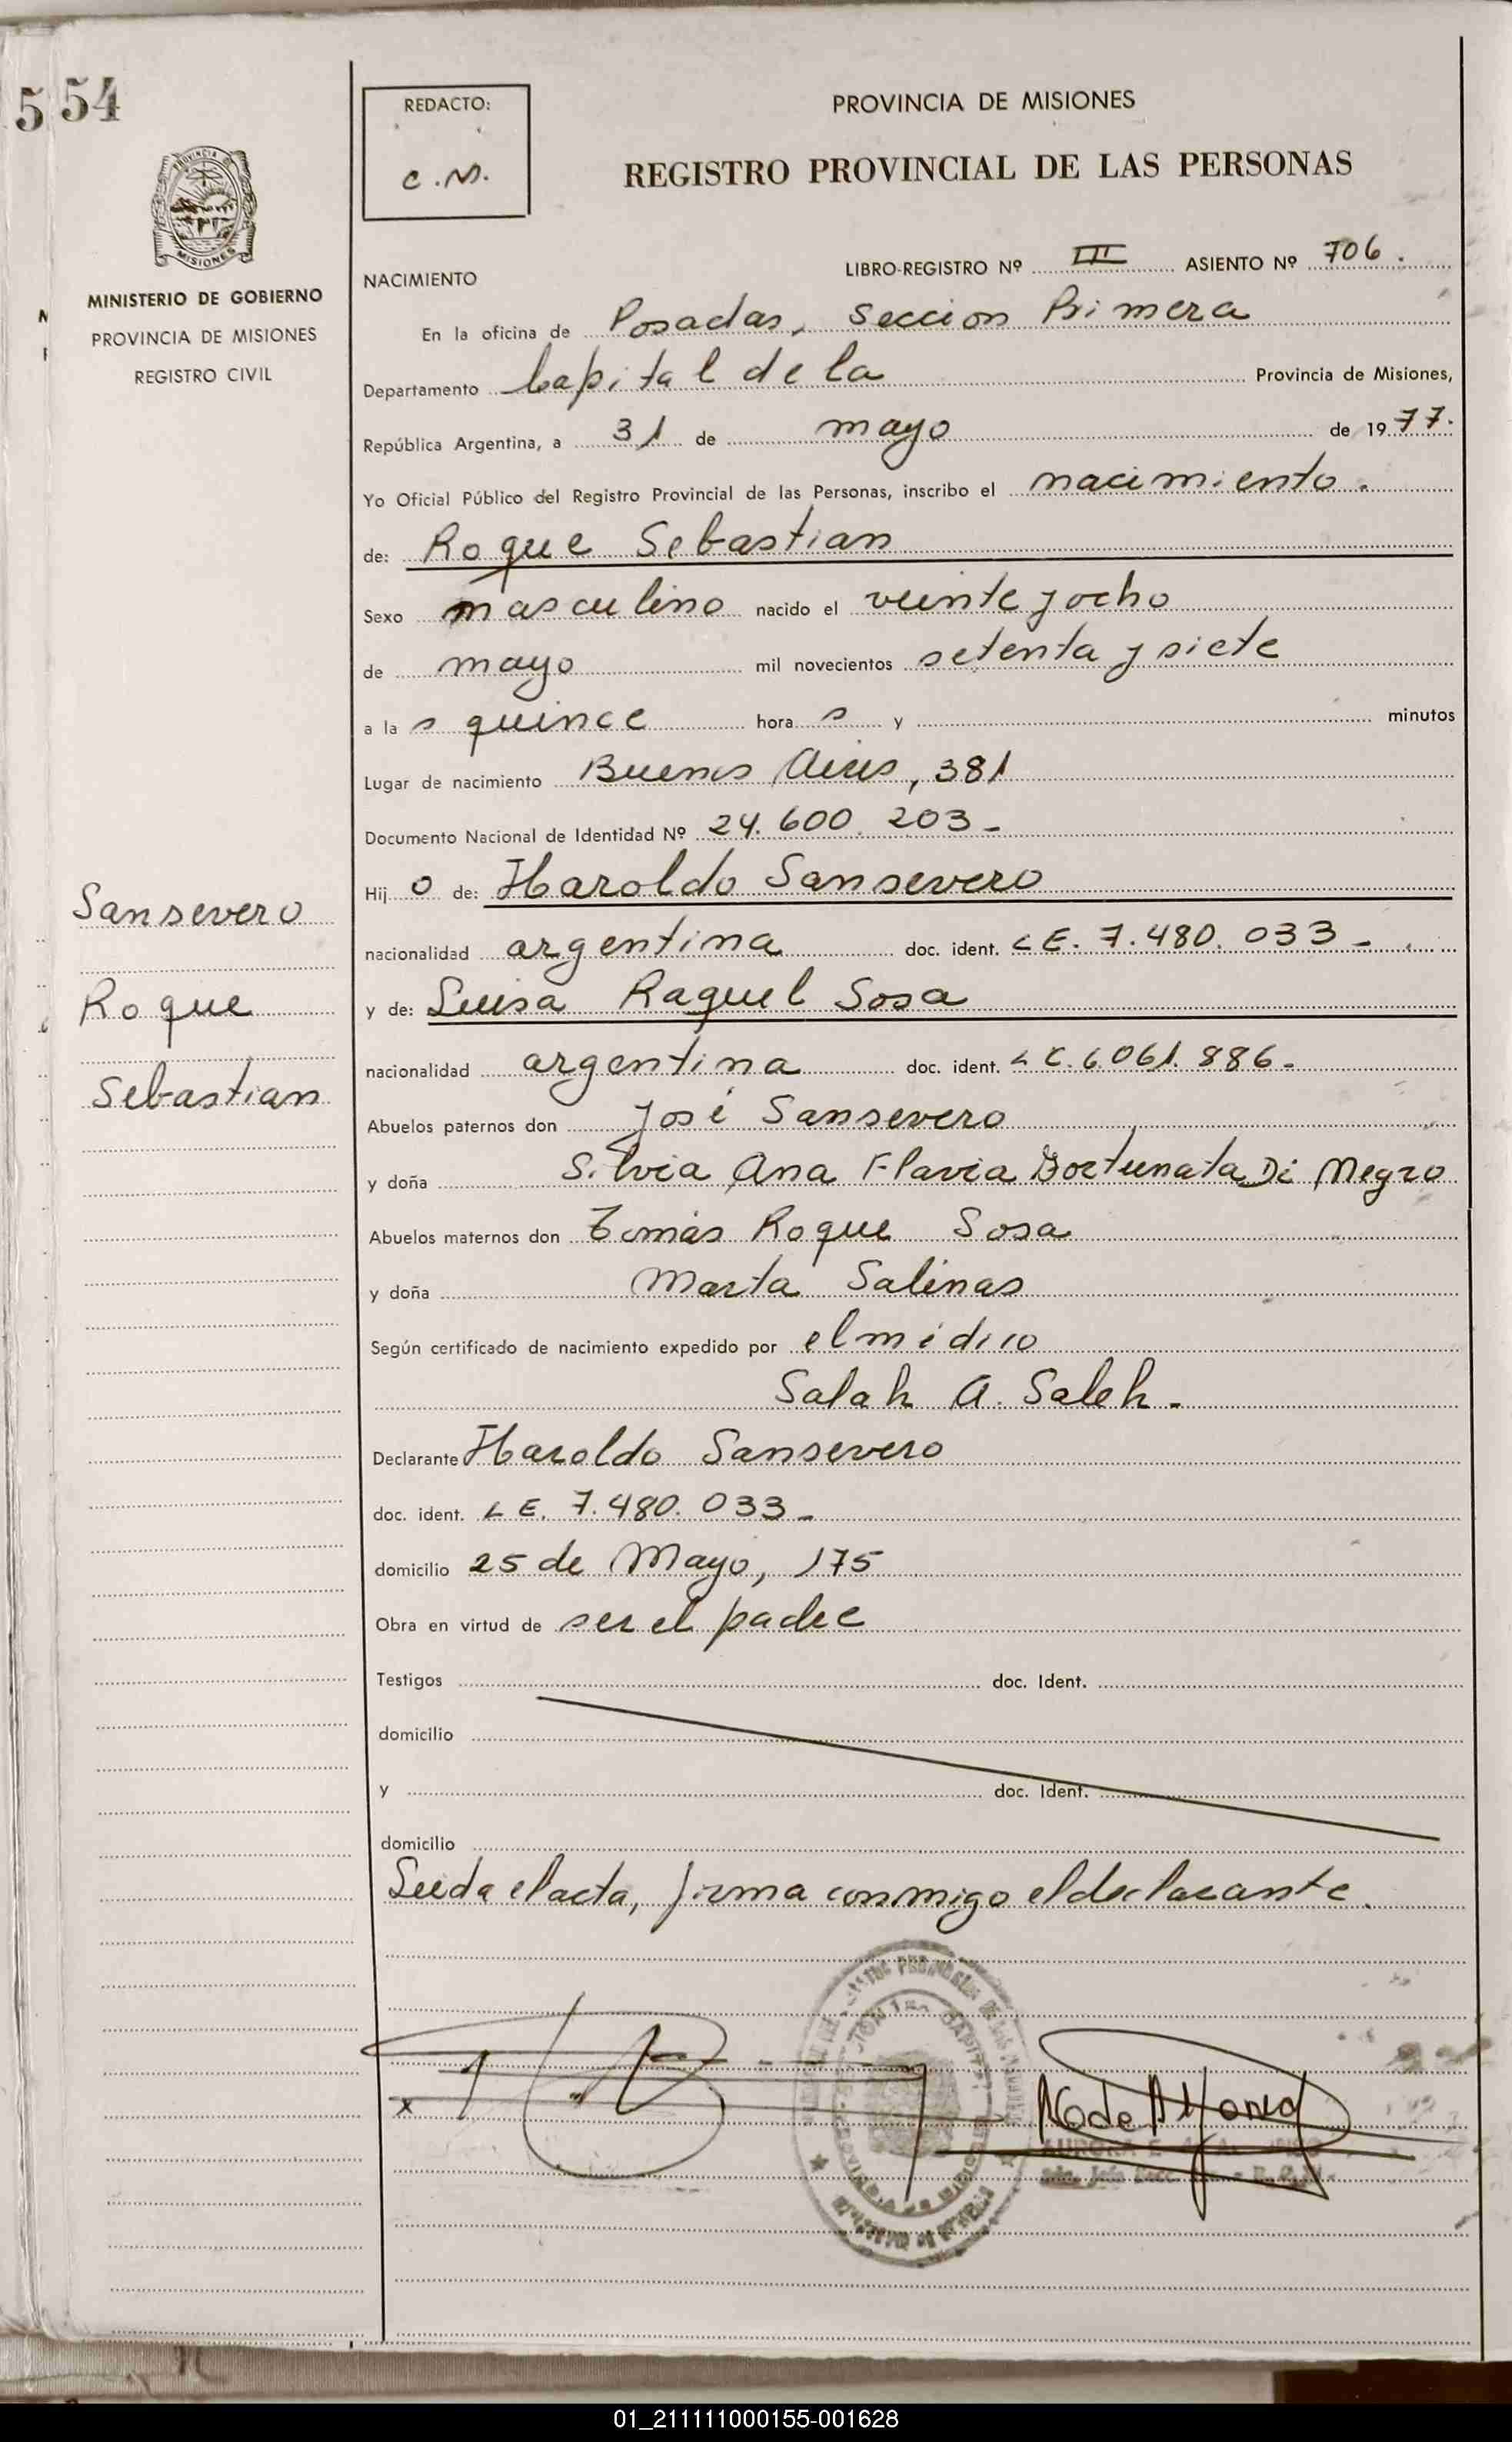 554
REDACTO:
C.M.
PROVINCIA DE MISIONES
REGISTRO PROVINCIAL DE LAS PERSONAS
MINISTERIO DE GOBIERNO
PROVINCIA DE MISIONES
REGISTRO CIVIL
LIBRO-REGISTRO Nº III ASIENTO Nº 706.
NACIMIENTO
En la oficina de Posadas, Seccion Primera
Departamento Capital de la Provincia de Misiones,
República Argentina, a 31 de mayo de 1977.
Yo Oficial Público del Registro Provincial de las Personas, inscribo el nacimiento.
de: Roque Sebastian
Sexo masculino nacido el veinte y ocho
de mayo mil novecientos setenta y siete
a las quince horas y minutos
Lugar de nacimiento Buenos Aires, 381
Documento Nacional de Identidad Nº 24.600.203-
Hijo de: Haroldo Sansevero
nacionalidad argentina doc. ident. LE. 7.480.033-
y de: Luisa Raquel Sosa
nacionalidad argentina doc. ident. LC. 6.061.886-
Abuelos paternos don José Sansevero
y doña Silvia Ana Flavia Fortunata Di Negro
Abuelos maternos don Tomás Roque Sosa
y doña Marta Salinas
Según certificado de nacimiento expedido por el médico
Salah A. Saleh-
Declarante Haroldo Sansevero
doc. ident. LE. 7.480.033-
domicilio 25 de Mayo, 175
Obra en virtud de ser el padre
Testigos doc. Ident.
domicilio
y doc. Ident.
domicilio
Leida el acta, firma conmigo el declarante.
Sansevero
Roque
Sebastian
01_211111000155-001628